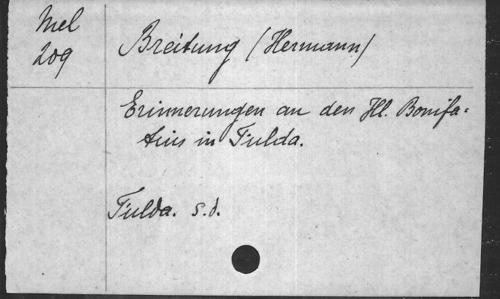 Mel
209
Breitung (Hermann)
Erinnerungen an den Hl. Bonifa-
tius in Fulda.
Fulda. s.d.